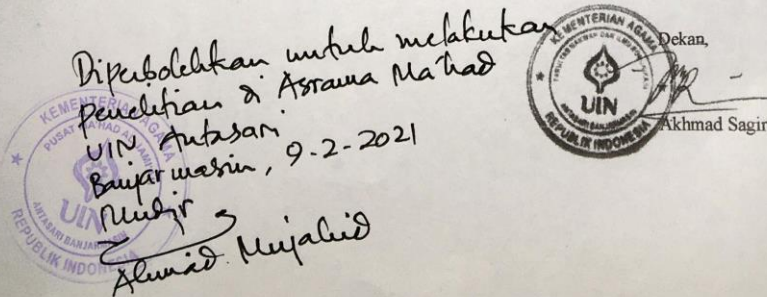 Diperbolehkan untuk melakukan
penelitian di Asrama Ma'had
UIN Antasari
Banjarmasin, 9-2-2021
Mudir
Ahmad Mujahid
KEMENTERIAN AGAMA
PUSAT MA'HAD AL-JAMI'AH
UIN
ANTASARI BANJARMASIN
REPUBLIK INDONESIA
Dekan,
Akhmad Sagir
KEMENTERIAN AGAMA
UIN
ANTASARI BANJARMASIN
REPUBLIK INDONESIA